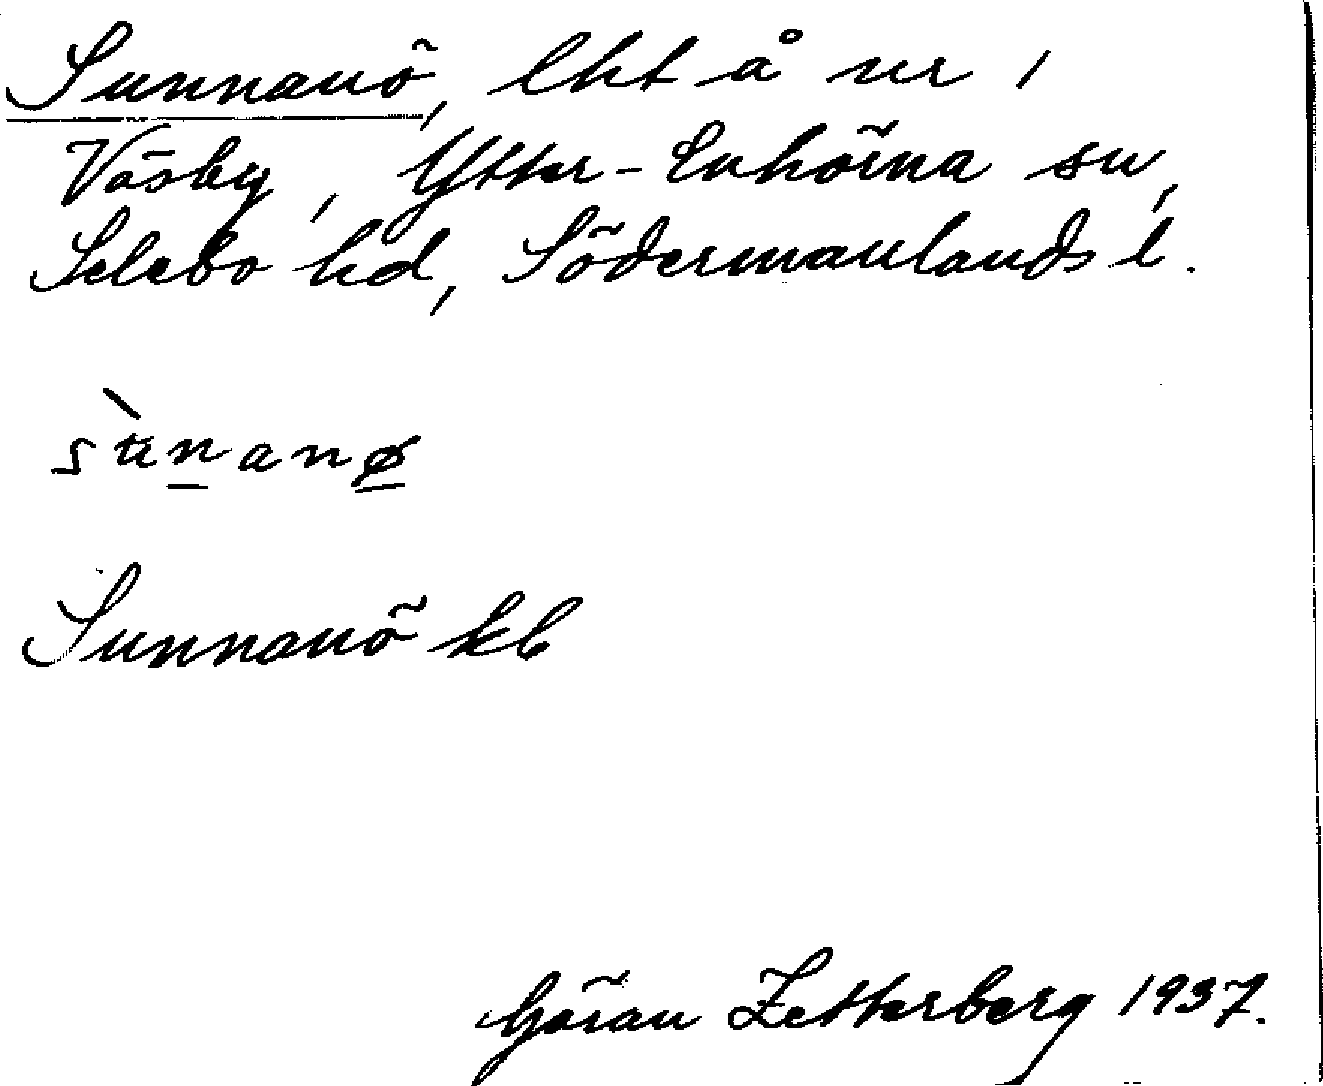 Sunnanö, lht å nr 1
Väsby, Ytter-Enhörna sn,
Selebo hd, Södermanlands l.
sùnanø
Sunnanö kb
Göran Zetterberg 1937.